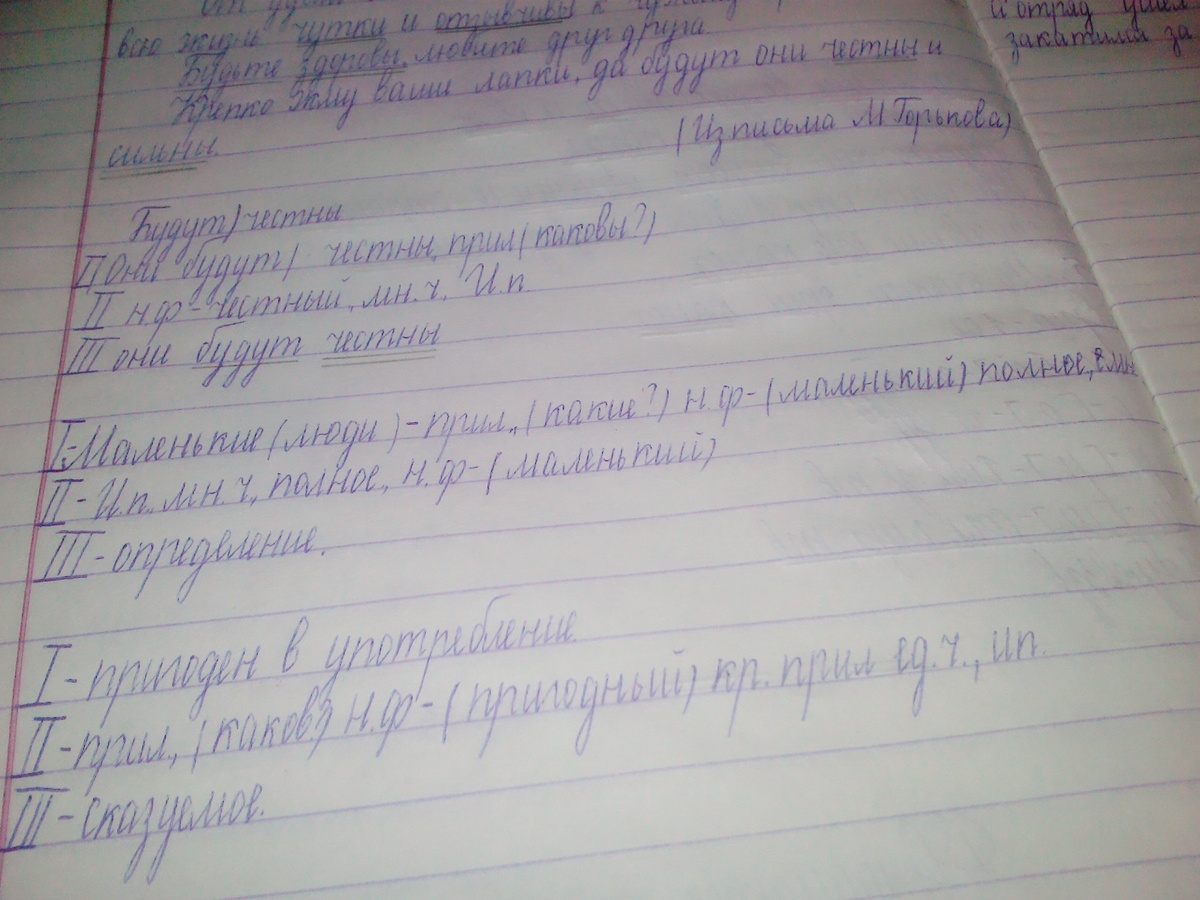 всю жизнь чутки и отзывчивы к
Будьте здоровы, любите друг друга.
Крепко жму ваши лапки, да будут они честны и
сильны.
(Из письма М Горькова)
Будут) честны
II Они будут) честны, прил (каковы?)
II н.ф - честный, мн.ч, И.п.
III они будут честны
I-Маленькие (люди) - прил., (какие?) н.ф- (маленький) полное, в мн
II - И.п. мн.ч, полное, н.ф - (маленький)
III - определение.
I - пригоден в употребление.
II - прил., (каков?) н.ф - (пригодный) кр. прил ед.ч., ип.
III - сказуемое.
А отряд ушел
закатился за